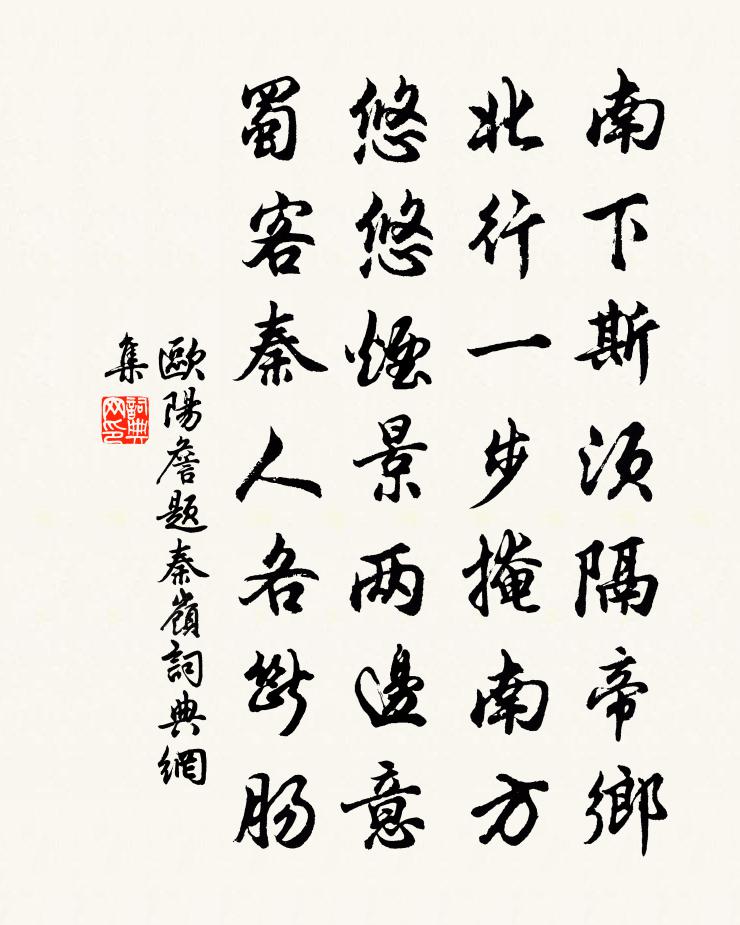 南下斯須隔帝鄉
北行一步掩南方
悠悠煙景兩邊意
蜀客秦人各斷腸
歐陽詹題秦嶺詞典網
集
詞典
网印